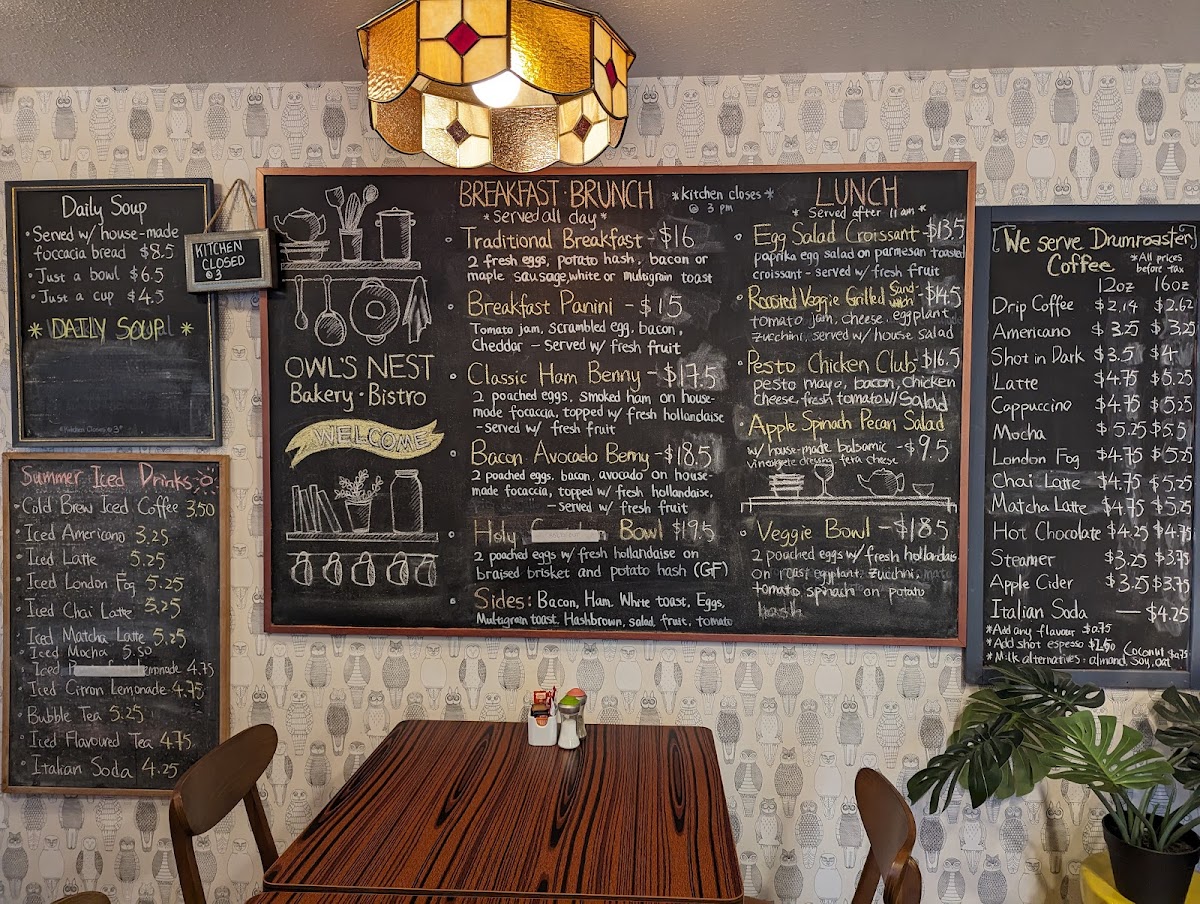 Daily Soup
• Served w/ house-made
foccacia bread $8.5
• Just a bowl $6.5
• Just a cup $4.5
* DAILY SOUP *
*Kitchen Closes @ 3*
KITCHEN
CLOSED
@3
Summer Iced Drinks
• Cold Brew Iced Coffee 3.50
• Iced Americano 3.25
• Iced Latte 5.25
• Iced London Fog 5.25
• Iced Chai Latte 5.25
• Iced Matcha Latte 5.25
• Iced Mocha 5.50
• Iced P emonade 4.75
• Iced Citron Lemonade 4.75
• Bubble Tea 5.25
• Iced Flavoured Tea 4.75
• Italian Soda 4.25
OWL'S NEST
Bakery • Bistro
WELCOME
BREAKFAST • BRUNCH
*Served all day*
*Kitchen closes*
@ 3 pm
• Traditional Breakfast - $16
2 fresh eggs, potato hash, bacon or
maple sausage, white or multigrain toast
• Breakfast Panini - $15
Tomato jam, scrambled egg, bacon,
Cheddar - served w/ fresh fruit
• Classic Ham Benny - $17.5
2 poached eggs, smoked ham on house-
made focaccia, topped w/ fresh hollandaise
- served w/ fresh fruit
• Bacon Avocado Benny - $18.5
2 poached eggs, bacon, avocado on house-
made focaccia, topped w/ fresh hollandaise,
- served w/ fresh fruit
• Holy Bowl $19.5
2 poached eggs w/ fresh hollandaise on
braised brisket and potato hash (GF)
• Sides: Bacon, Ham, White toast, Eggs,
Multigrain toast, Hashbrown, salad, fruit, tomato
LUNCH
* Served after 11 am *
• Egg Salad Croissant - $13.5
paprika egg salad on parmesan toasted
croissant - served w/ fresh fruit
• Roasted Veggie Grilled Sand-wich - $14.5
tomato jam, cheese, eggplant,
zucchini, served w/ house salad
• Pesto Chicken Club - $16.5
pesto mayo, bacon, chicken
cheese, fresh tomato w/ Salad
• Apple Spinach Pecan Salad
w/ house-made balsamic - $9.5
vinaigrette dressing, feta cheese
• Veggie Bowl - $18.5
2 poached eggs w/ fresh hollandais
on roast eggplant, zucchini,
tomato, spinach on potato
hash
We serve Drumroaster
Coffee
*All prices
before tax
12oz 16oz
Drip Coffee $2.14 $2.62
Americano $3.25 $3.25
Shot in Dark $3.5 $4
Latte $4.75 $5.25
Cappuccino $4.75 $5.25
Mocha $5.25 $5.5
London Fog $4.75 $5.25
Chai Latte $4.75 $5.25
Matcha Latte $4.75 $5.25
Hot Chocolate $4.25 $4.75
Steamer $3.25 $3.75
Apple Cider $3.25 $3.75
Italian Soda — $4.25
*Add any flavour $0.75
*Add shot espresso
*Milk alternatives: almond, soy, oat
Coconut $0.75